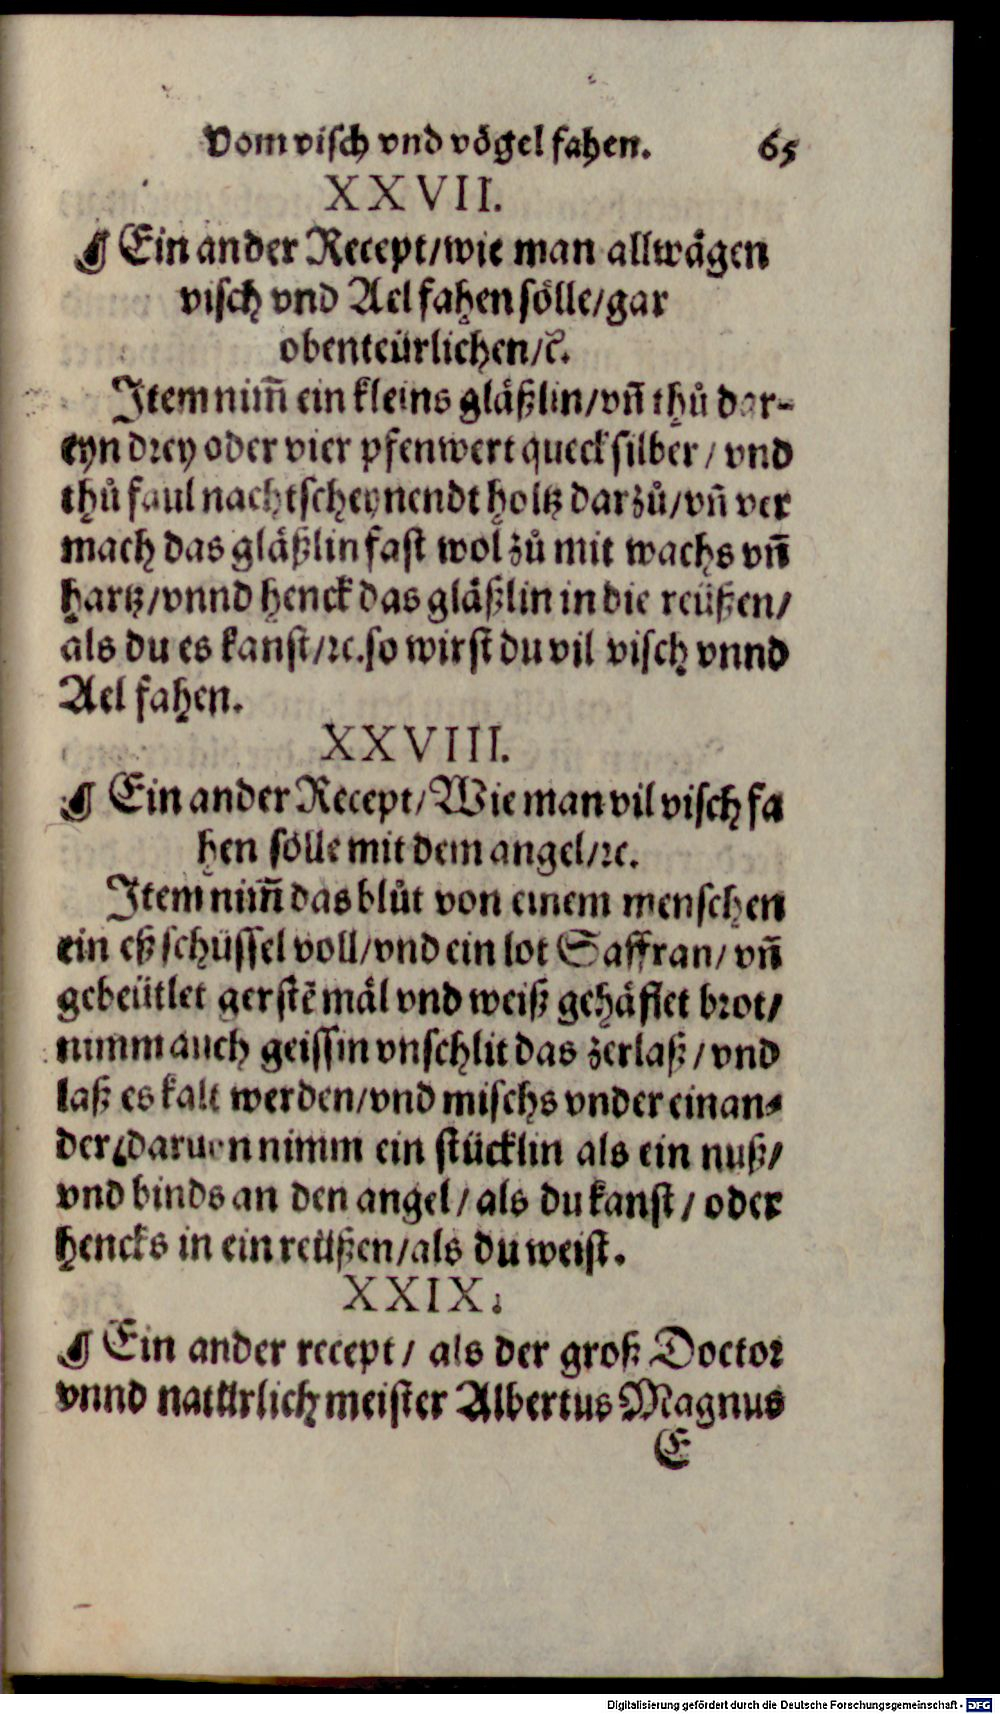 Vom visch vnd vögel fahen. 65
XXVII.
¶ Ein ander Recept/wie man allwägen
visch vnd Ael fahen sölle/gar
obenteürlichen/ꝛc̄.
Item nim̄ ein kleins gläßlin/vn̄ thuͦ dar-
eyn drey oder vier pfenwert quecksilber/ vnd
thuͦ faul nachtscheynendt holtz darzuͦ/vn̄ ver
mach das gläßlin fast wol zuͦ mit wachs vn̄
hartz/vnnd henck das gläßlin in die reüßen/
als du es kanst/ꝛc. so wirst du vil visch vnnd
Ael fahen.
XXVIII.
¶ Ein ander Recept/Wie man vil visch fa
hen sölle mit dem angel/ꝛc.
Item nim̄ das bluͦt von einem menschen
ein eßschüssel voll/vnd ein lot Saffran/ vn̄
gebeütlet gerstē mäl vnd weiß gehäflet brot/
nimm auch geissin vnschlit das zerlaß/ vnd
laß es kalt werden/vnd mischs vnder einan-
der/daruon nimm ein stücklin als ein nuß/
vnd binds an den angel/ als du kanst/ oder
hencks in ein reüßen/als du weist.
XXIX.
¶ Ein ander recept/ als der groß Doctor
vnnd natürlich meister Albertus Magnus
E
Digitalisierung gefördert durch die Deutsche Forschungsgemeinschaft - DFG